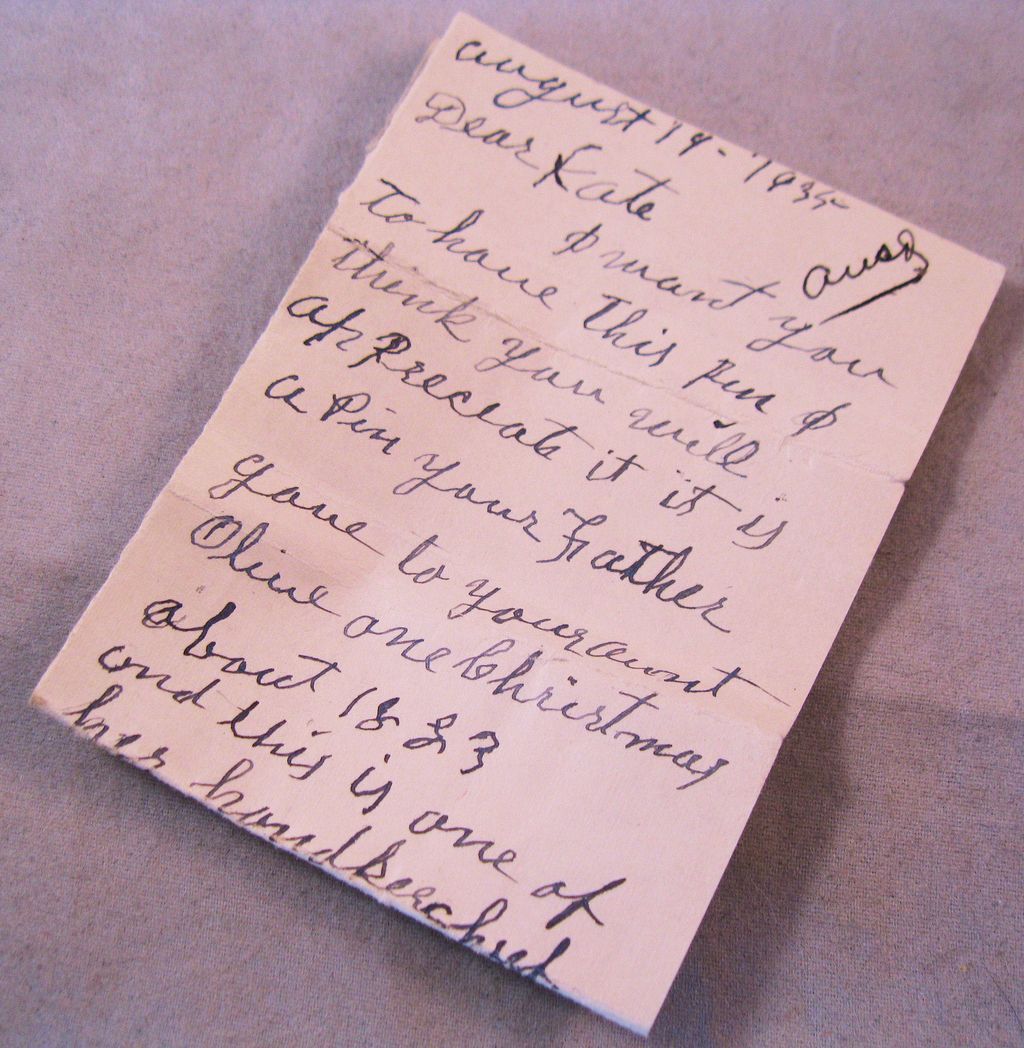 august 19 - 1935
Dear Kate
I want you
to have this pin I
think you will
appreciate it it is
a Pin your Father
gave to your aunt
Olive one Christmas
about 1883
and this is one of
her handkerchief.